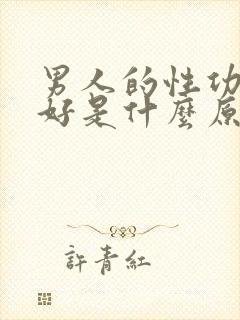 男人的性功
好是什麼原
許青紅